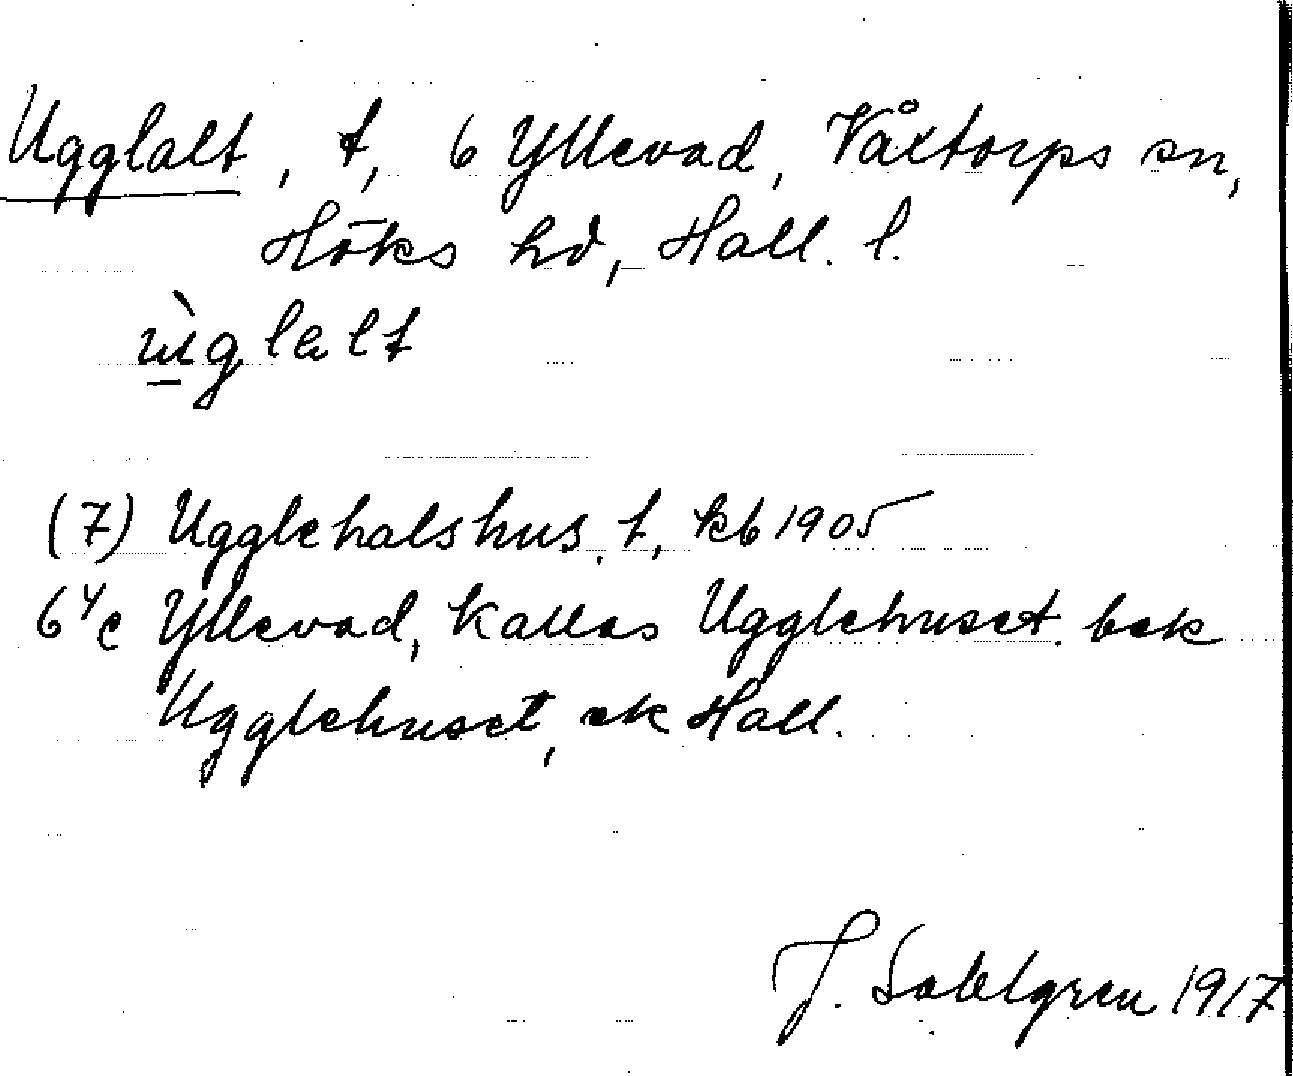 Ugglalt, t, 6 Yllevad, Våxtorps sn,
Höks hd, Hall. l.
ùglalt
(7) Ugglehalshus, t, kb 1905
6⁴c Yllevad, kallas Ugglehuset. bok
Ugglehuset, ek Hall.
J. Sahlgren 1917